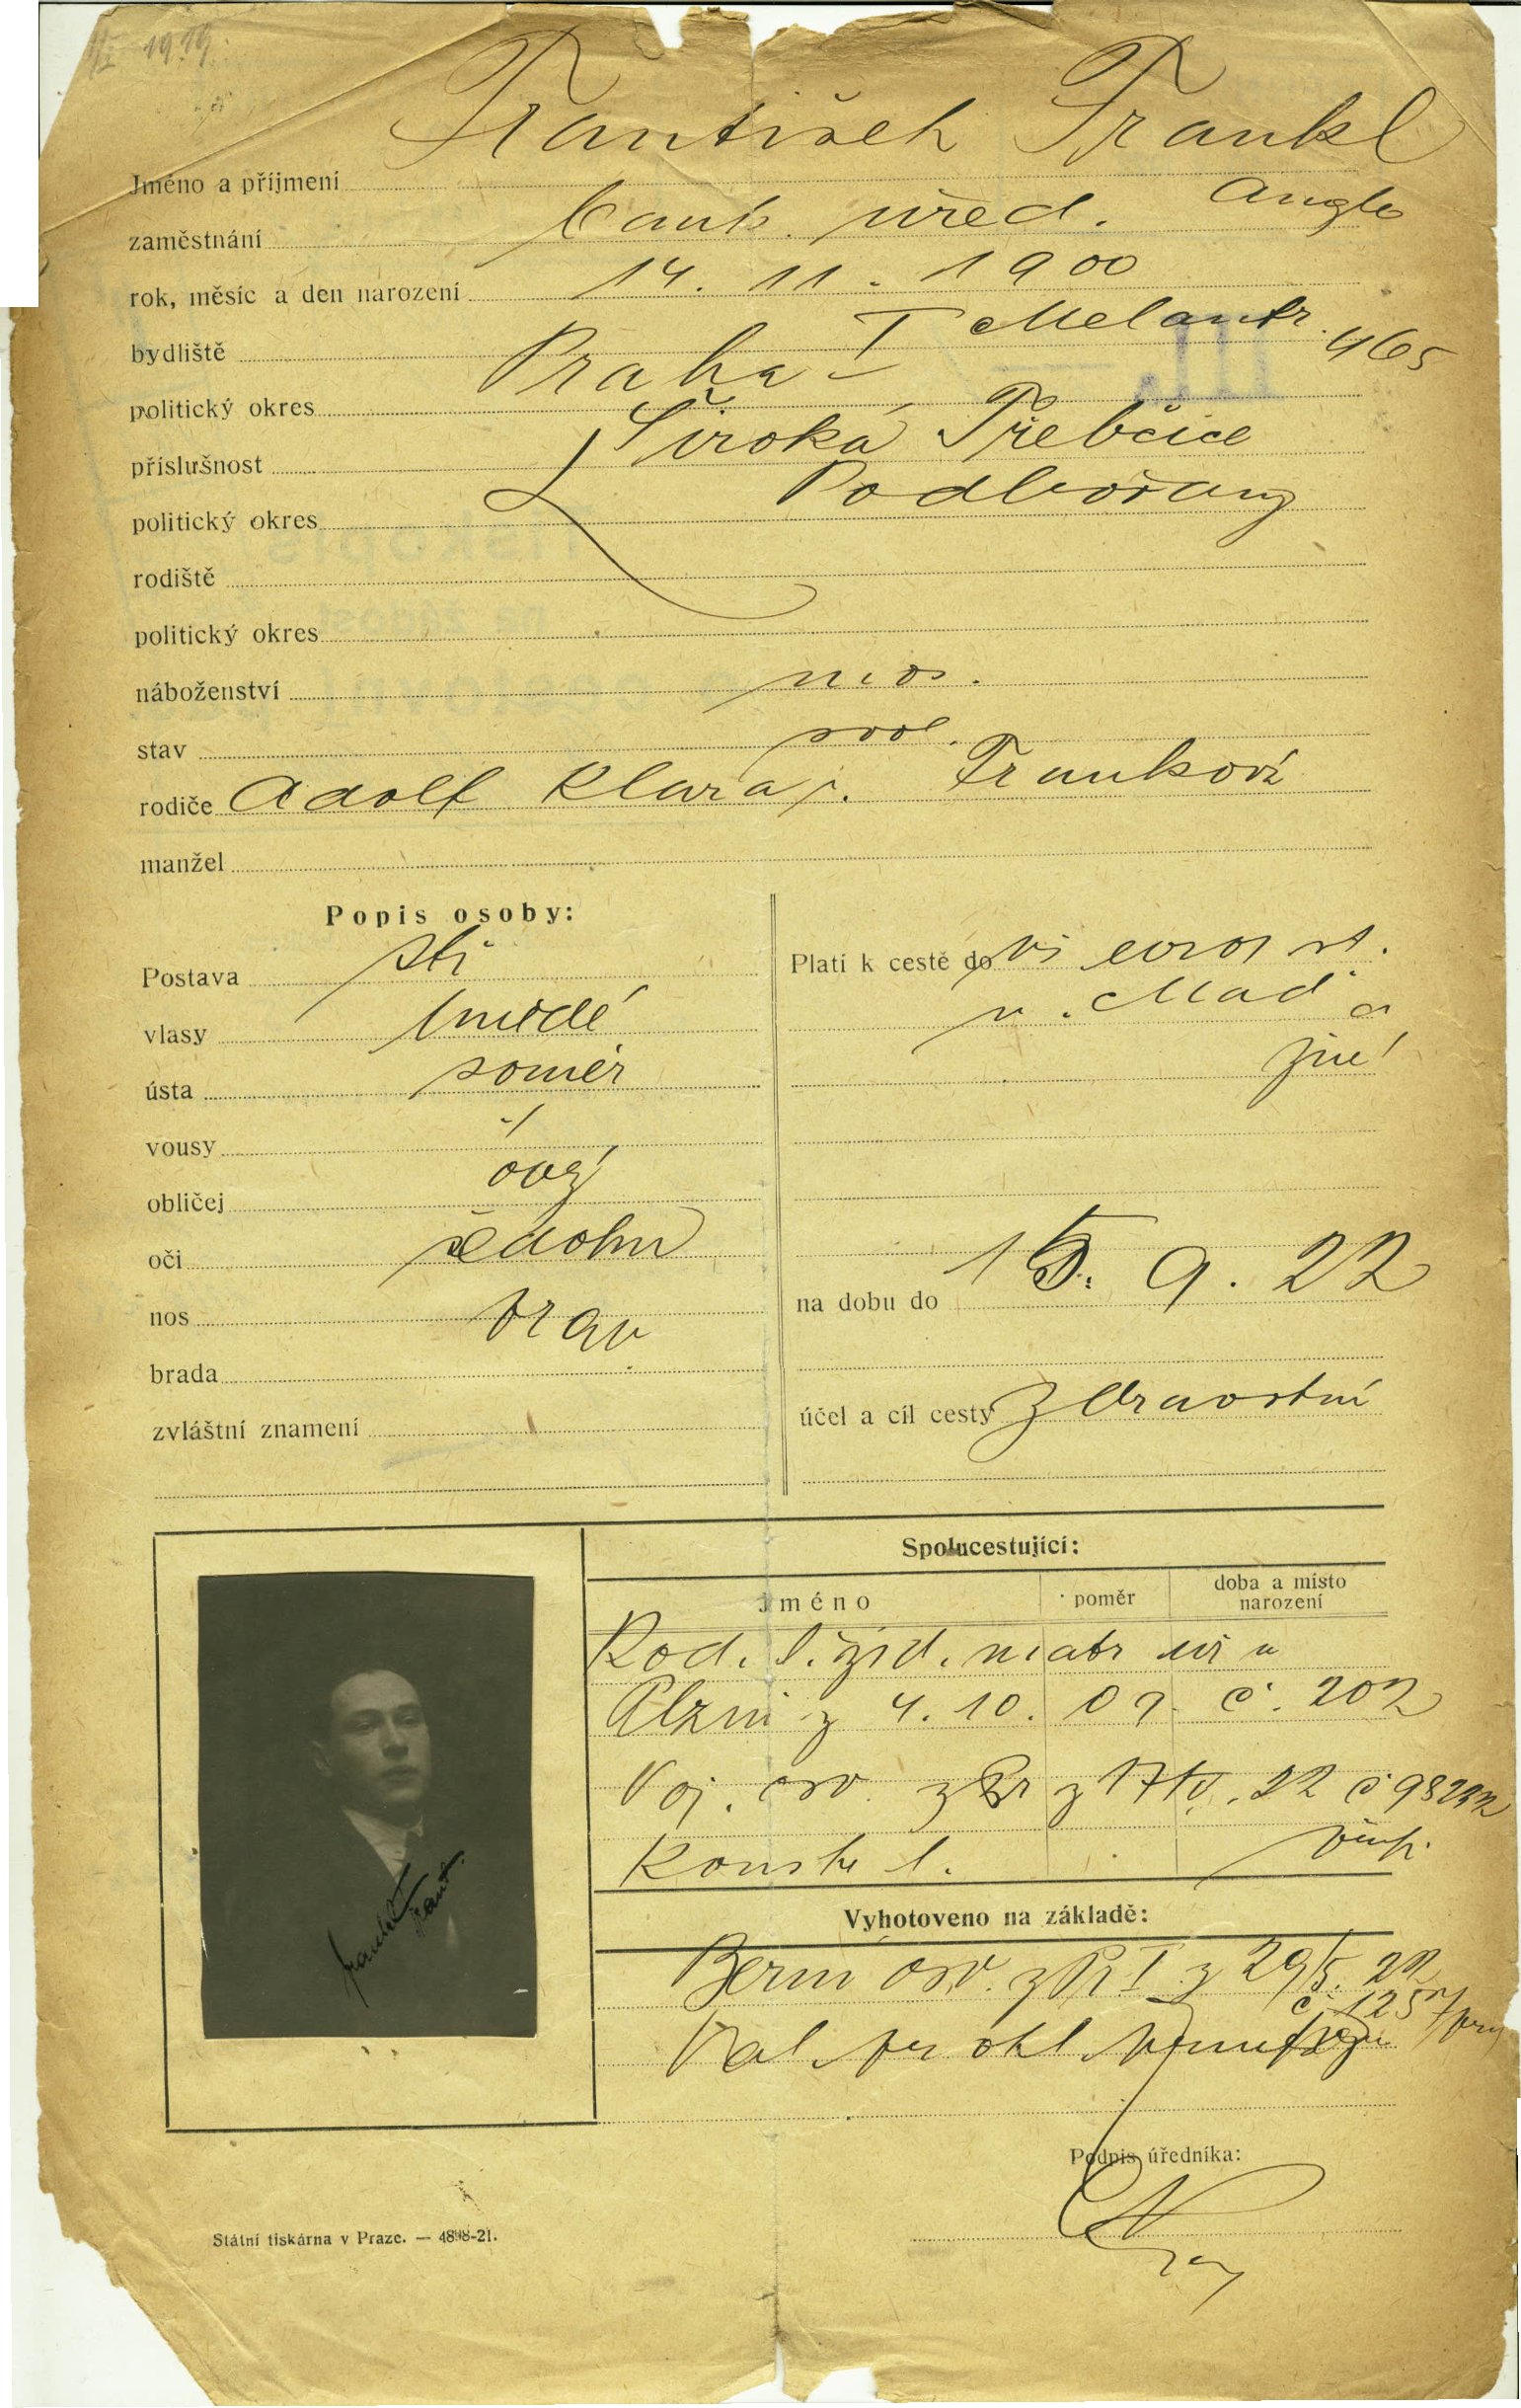 1919
František Frankl
Jméno a příjmení
zaměstnání bank. úřed. Anglo
rok, měsíc a den narození 14. 11. 1900
bydliště Praha I Melantr. 465
politický okres
příslušnost Široká Třebčice
politický okres Podbořany
rodiště
politický okres
náboženství mos.
stav svob.
rodiče Adolf Klara r. Franková
manžel
Popis osoby:
Postava stř
vlasy hnědé
ústa souměr
vousy -/
obličej ová
oči šedohn
nos prav
brada
zvláštní znamení
Platí k cestě do vš evrop st.
v. Maď a
jiné
na dobu do 15. 9. 22
účel a cíl cesty zdravotní
Spolucestující:
Jméno poměr doba a místo narození
Rod. l. žid. matr úř v
Plzni z 4. 10. 09 č. 202
Voj. osv. z Pr z 17/5. 22 č
Konsk l.
Vyhotoveno na základě:
Berní osv. z Pr I z 29/5. 22
č. 1257/
Podpis úředníka:
Státní tiskárna v Praze. — 4898-21.